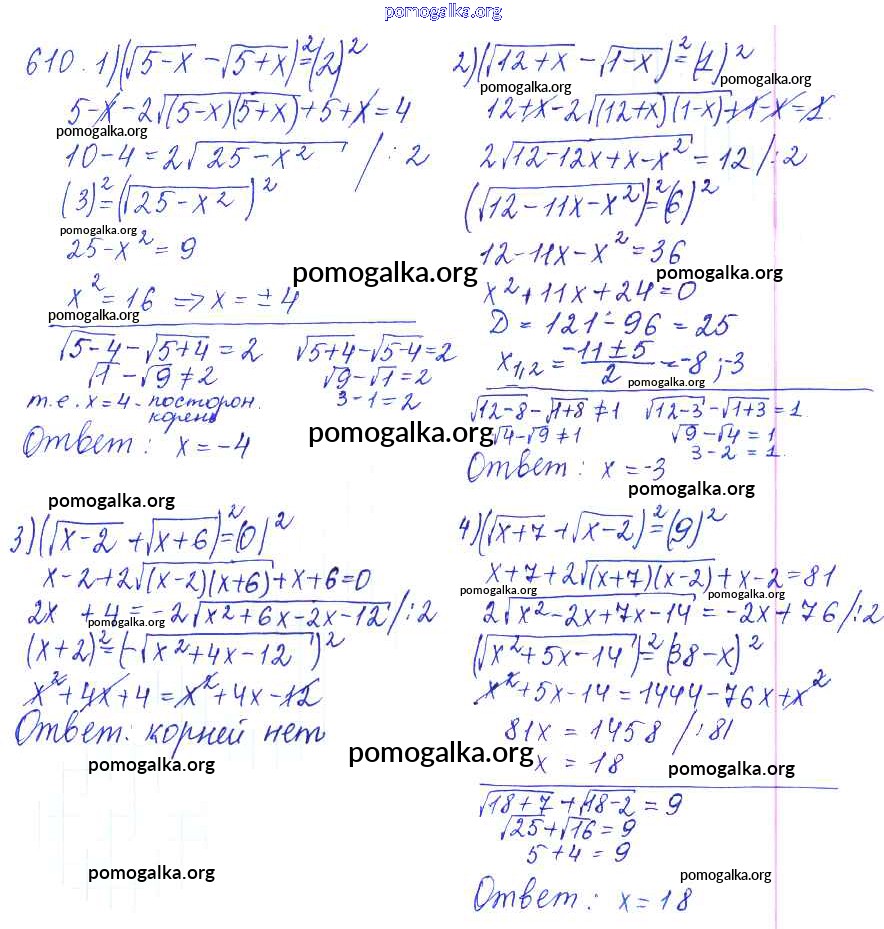 pomogalka.org
610. 1) (√5-x - √5+x)² = (2)²
5-x-2√(5-x)(5+x)+5+x=4
pomogalka.org
10-4=2√25-x² /:2
(3)²=(√25-x²)²
pomogalka.org
25-x²=9
pomogalka.org
x²=16 => x=±4
pomogalka.org
√5-4-√5+4=2 √5+4-√5-4=2
√1-√9≠2 √9-√1=2
т.е. x=4-посторон. 3-1=2
корень
pomogalka.org
Ответ: x=-4
2) (√12+x - √1-x)² = (1)²
pomogalka.org
12+x-2√(12+x)(1-x)+1-x=1
pomogalka.org
2√12-12x+x-x²=12 /:2
(√12-11x-x²)²=(6)²
12-11x-x²=36
pomogalka.org
x²+11x+24=0
D=121-96=25
x1,2=-11±5/2=-8;-3
pomogalka.org
√12-8-√1+8≠1 √12-3-√1+3=1
√4-√9≠1 √9-√4=1
3-2=1.
Ответ: x=-3
pomogalka.org
pomogalka.org
3) (√x-2+√x+6)²=(0)²
x-2+2√(x-2)(x+6)+x+6=0
pomogalka.org
2x+4=-2√x²+6x-2x-12 /:2
pomogalka.org
(x+2)²=(-√x²+4x-12)²
x²+4x+4=x²+4x-12
Ответ: корней нет
pomogalka.org
pomogalka.org
pomogalka.org
4) (√x+7+√x-2)²=(9)²
x+7+2√(x+7)(x-2)+x-2=81
pomogalka.org
pomogalka.org
2√x²-2x+7x-14=-2x+76 /:2
(√x²+5x-14)²=(38-x)²
x²+5x-14=1444-76x+x²
81x=1458 /:81
x=18
pomogalka.org
√18+7+√18-2=9
√25+√16=9
5+4=9
pomogalka.org
Ответ: x=18